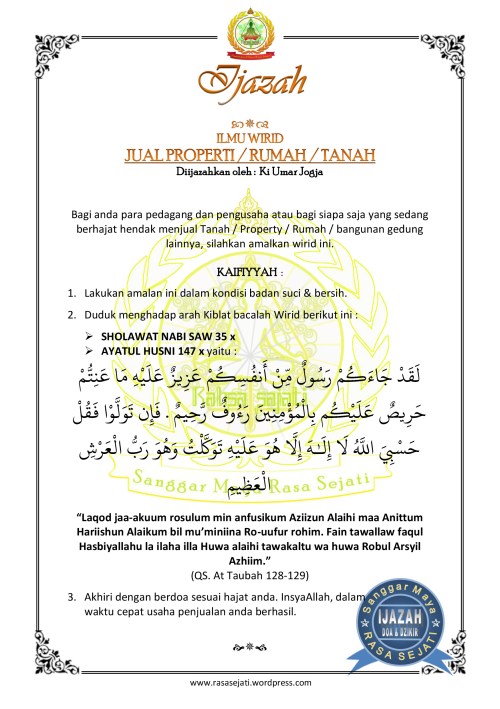 Ijazah
ILMU WIRID
JUAL PROPERTI / RUMAH / TANAH
Diijazahkan oleh : Ki Umar Jogja
Bagi anda para pedagang dan pengusaha atau bagi siapa saja yang sedang
berhajat hendak menjual Tanah / Property / Rumah / bangunan gedung
lainnya, silahkan amalkan wirid ini.
KAIFIYYAH :
1. Lakukan amalan ini dalam kondisi badan suci & bersih.
2. Duduk menghadap arah Kiblat bacalah Wirid berikut ini :
➢ SHOLAWAT NABI SAW 35 x
➢ AYATUL HUSNI 147 x yaitu :
لَقَدْ جَاءَكُمْ رَسُولٌ مِّنْ أَنفُسِكُمْ عَزِيزٌ عَلَيْهِ مَا عَنِتُّمْ
حَرِيصٌ عَلَيْكُم بِالْمُؤْمِنِينَ رَءُوفٌ رَّحِيمٌ . فَإِن تَوَلَّوْا فَقُلْ
حَسْبِيَ اللَّهُ لَا إِلَـٰهَ إِلَّا هُوَ عَلَيْهِ تَوَكَّلْتُ وَهُوَ رَبُّ الْعَرْشِ
الْعَظِيمِ
Rasa Sejati
Sanggar Maya Rasa Sejati
“Laqod jaa-akuum rosulum min anfusikum Aziizun Alaihi maa Anittum
Hariishun Alaikum bil mu’miniina Ro-uufur rohim. Fain tawallaw faqul
Hasbiyallahu la ilaha illa Huwa alaihi tawakaltu wa huwa Robul Arsyil
Azhiim.”
(QS. At Taubah 128-129)
3. Akhiri dengan berdoa sesuai hajat anda. InsyaAllah, dalam
waktu cepat usaha penjualan anda berhasil.
Sanggar Maya
IJAZAH
DOA & DZIKIR
RASA SEJATI
www.rasasejati.wordpress.com